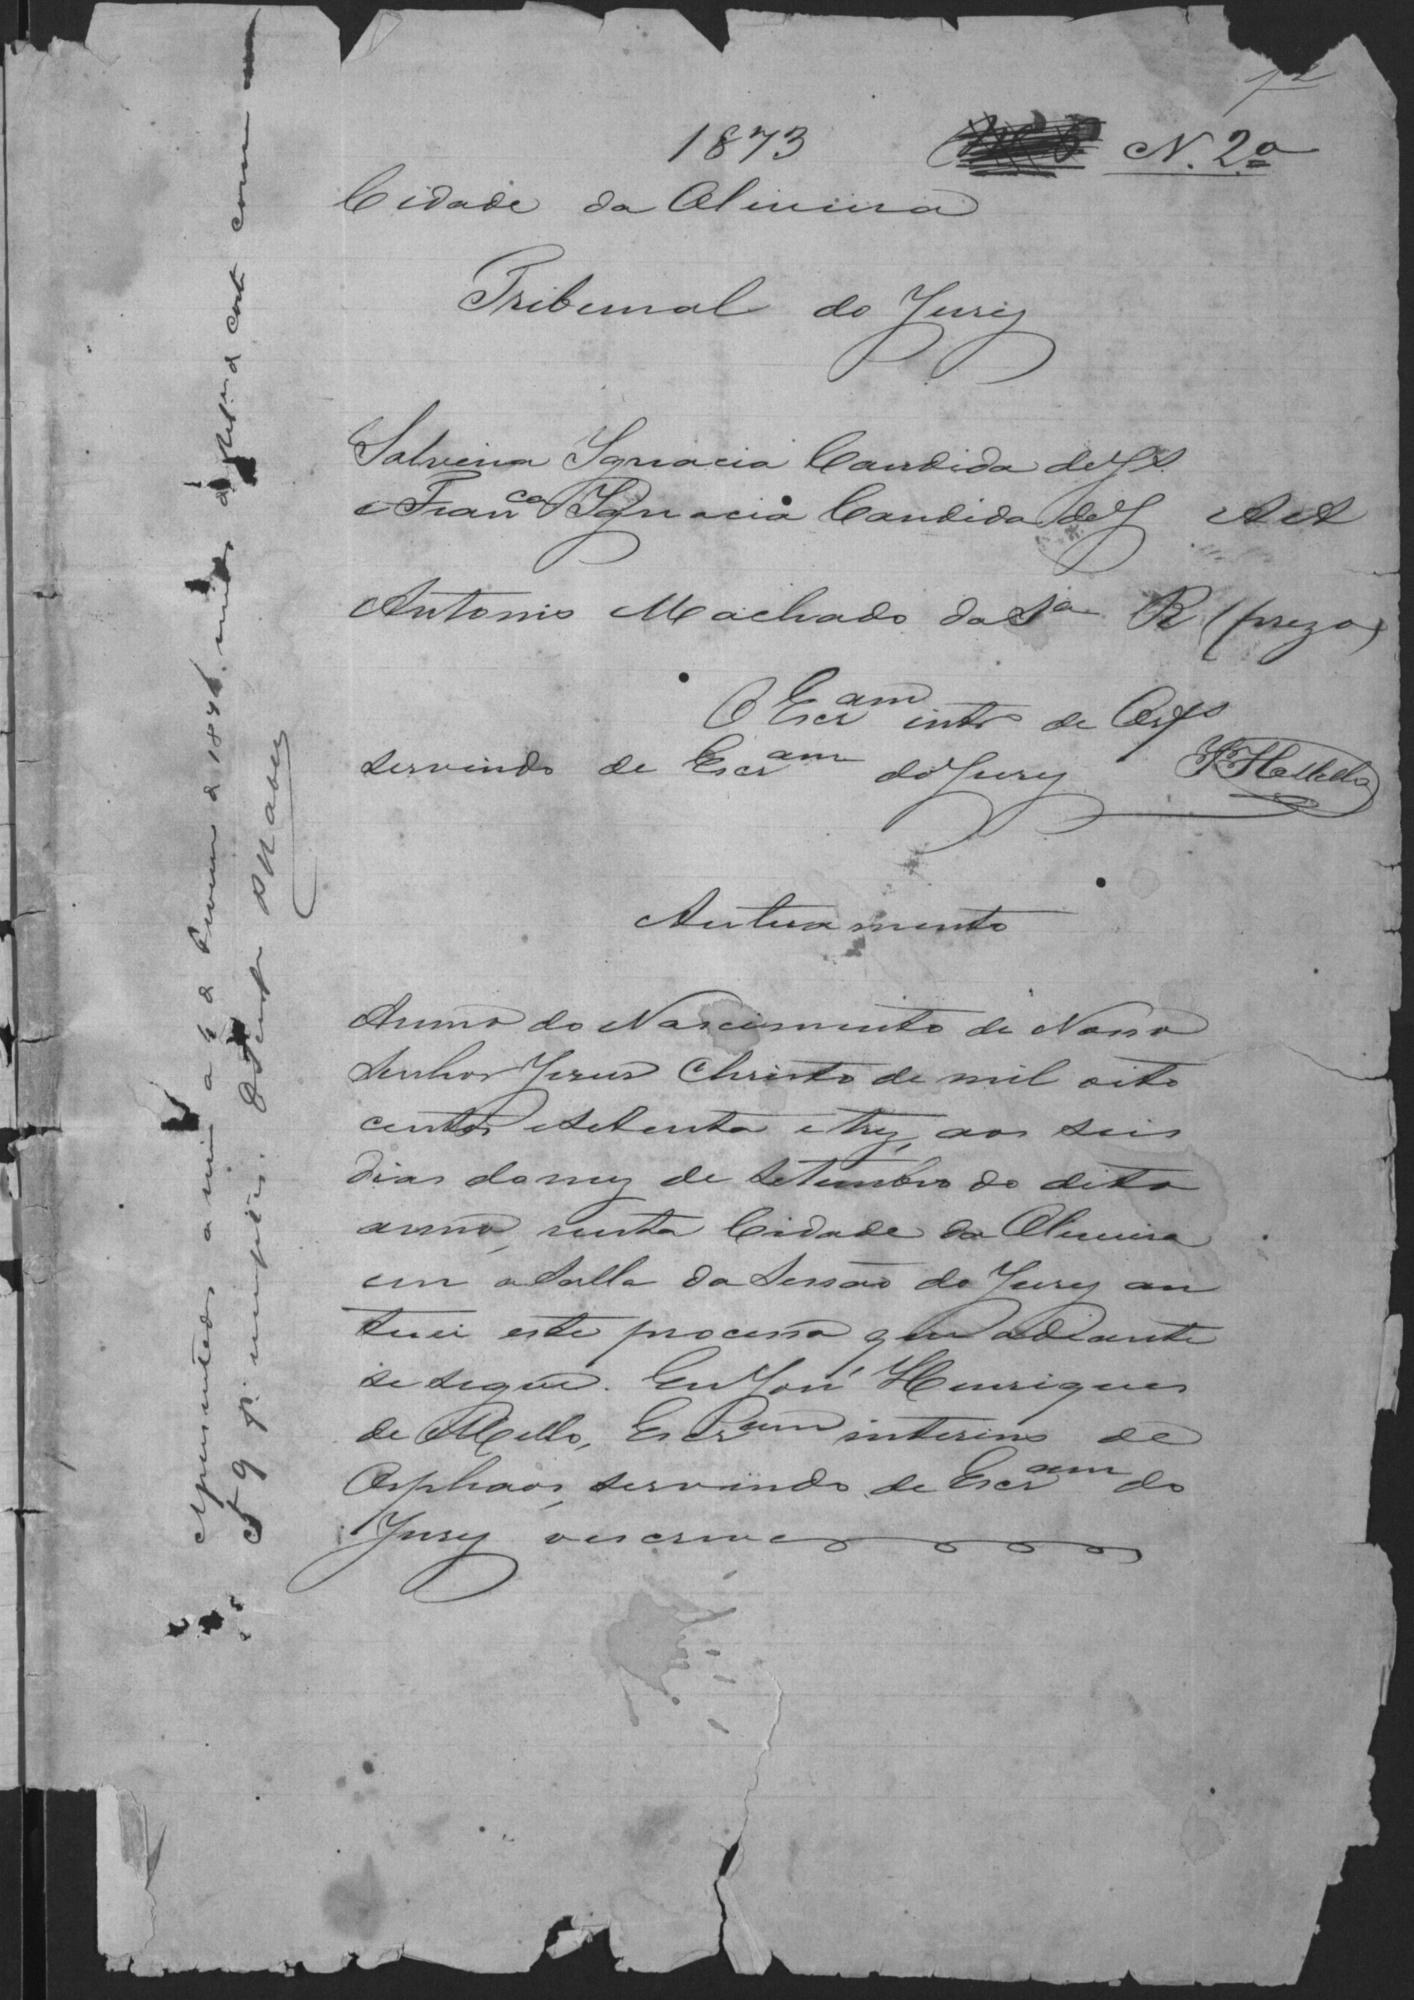 1873 N. 2º
Cidade da Oliveira
Tribunal do Jury
Salvina Ignacia Candida de Js
e Franca Ignacia Candida de J AA
Antonio Machado da Sa R (prezo)
O Escram intº de Orfs
servindo de Escram do Jury HMello
Autuamento
Anno do Nascimento de Nosso
Senhor Jesus Christo de mil oito
centos e setenta e trez, aos seis
dias do mez de Setembro do dito
anno, nesta Cidade da Oliveira
em a salla da Sessão do Jury au
tuei este processo que adiante
se segue. Eu José Henriques
de Mello, Escram interino de
Orphaos, servindo de Escram do
Jury o escrevi
Apresentados a mim a 4 de de 187 com